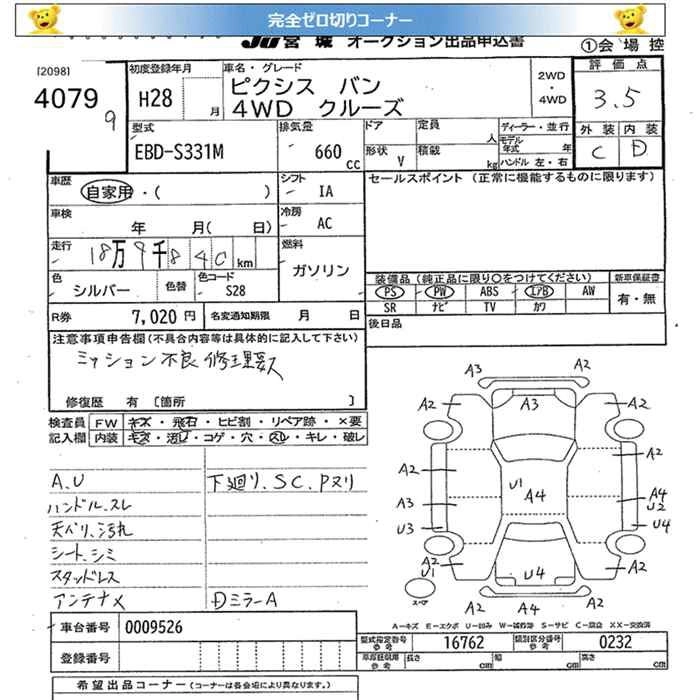 完全ゼロ切りコーナー
JU宮城 オークション出品申込書
①会場控
[2098]
4079
9
初度登録年月
H28 月
車名・グレード
ピクシス バン
4WD クルーズ
2WD
・
4WD
評価点
3.5
外装 内装
C D
型式
EBD-S331M
排気量
660 cc
ドア
形状 V
定員 人
積載 kg
ディーラー・並行
モデル年式 年
ハンドル 左・右
車歴
自家用・( )
シフト
IA
セールスポイント (正常に機能するものに限ります)
車検
年 月( 日)
冷房
AC
走行
18万9千840km
燃料
ガソリン
色
シルバー
色替
色コード
S28
装備品(純正品に限り○をつけてください)
新車保証書
PS PW ABS エアB AW
有・無
SR ナビ TV カワ
R券 7,020円
名変通知期限 月 日
後日品
注意事項申告欄(不具合内容等は具体的に記入して下さい)
ミッション不良 修理要ス
修復歴 有 [箇所 ]
検査員 FW キズ・飛石・ヒビ割・リペア跡・×要
記入欄 内装 キズ・汚レ・コゲ・穴・スレ・キレ・破レ
A.U 下廻り.SC.Pヌリ
ハンドル.スレ
天ベリ.汚れ
シート.シミ
スタッドレス
アンテナメ Dミラー A
A3 A2
A2 A3 A2
A2 A2
U1
A3 A4 A4
U2
U3 U4
A2 A2
U1 U4
スペア
A2 A4 A2
A-キズ E-エクボ U-凹み W-補修跡 S-サビ C-腐食 XX-交換済
車台番号 0009526
型式指定番号 参考 16762
類別区分番号 参考 0232
登録番号
車庫証明用 参考 長さ cm 幅 cm 高さ cm
希望出品コーナー(コーナーは各会場により異なります。)